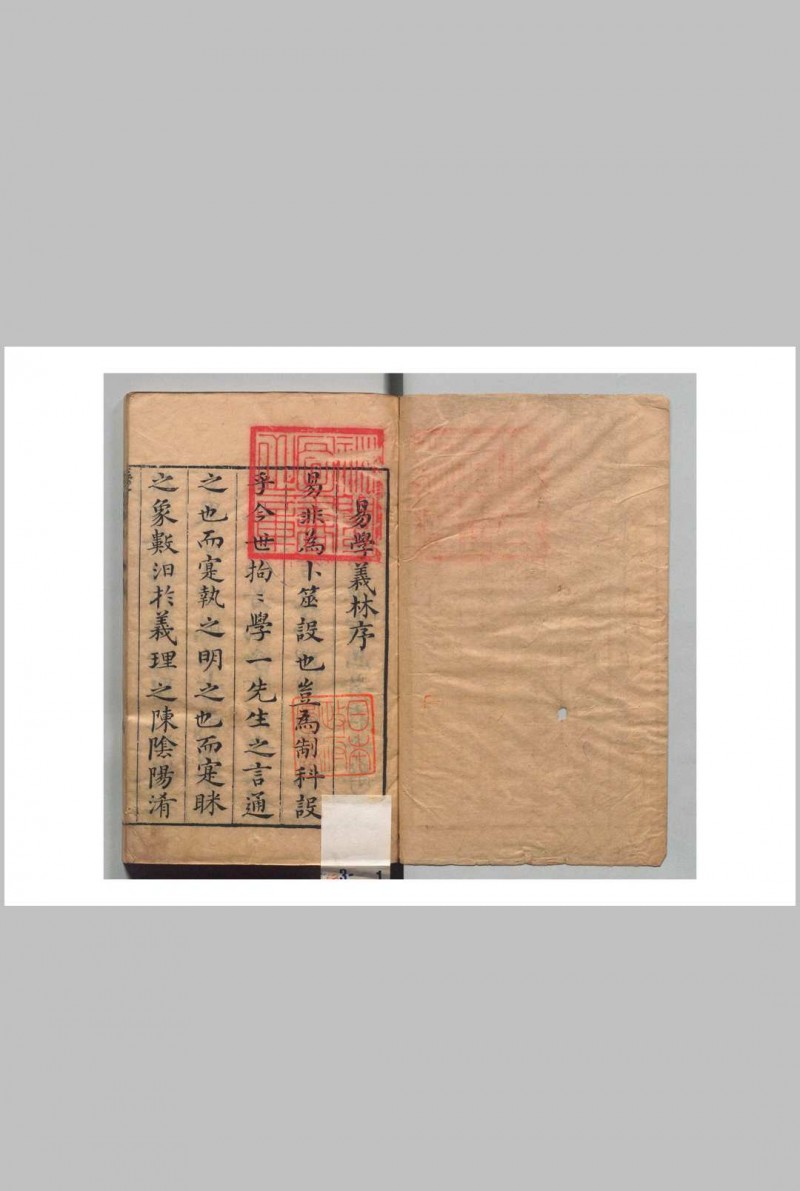 易學義林序
易非為卜筮設也豈爲制科設
乎今世拘〻學一先生之言通
之也而寔執之明之也而寔眯
之象數汨於義理之陳陰陽淆
3- 1